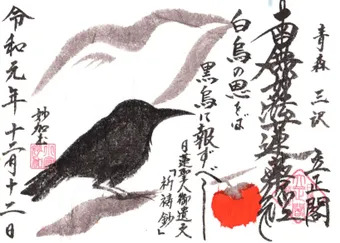 青森 三沢
立正閣
南無妙法蓮華経
白烏の恩をば
黒烏に報ずべし
日蓮聖人御遺文
「祈祷鈔」
令和元年十二月十二日